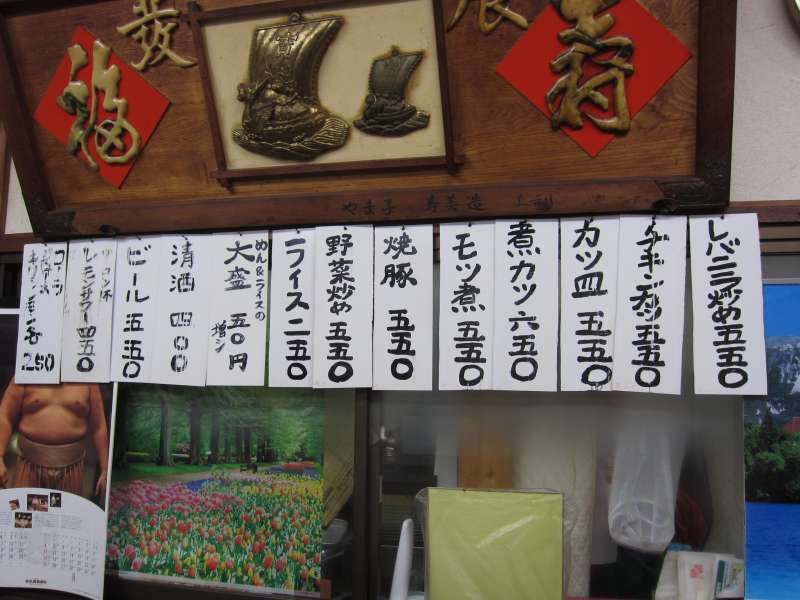 福
發
寶
展
寿
やま子 寿美造
レバニラ炒め 五五〇
チキンカツ 五五〇
カツ皿 五五〇
煮カツ 六五〇
モツ煮 五五〇
焼豚 五五〇
野菜炒め 五五〇
ライス 二五〇
めん&ライスの
大盛 五〇円
増シ
清酒 四〇〇
ビール 五五〇
レモンサワー 四五〇
コーラ
250